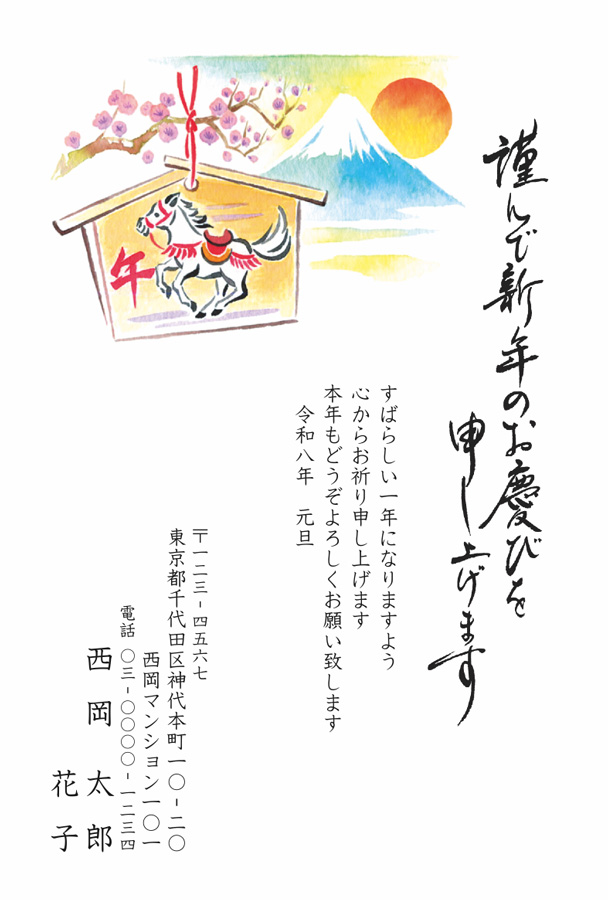 謹んで新年のお慶びを
申し上げます
すばらしい一年になりますよう
心からお祈り申し上げます
本年もどうぞよろしくお願い致します
令和八年　元旦
〒一二三-四五六七
東京都千代田区神代本町一〇-二〇
西岡マンション一〇一
電話　〇三-〇〇〇〇-一二三四
西岡　太郎
花子
午